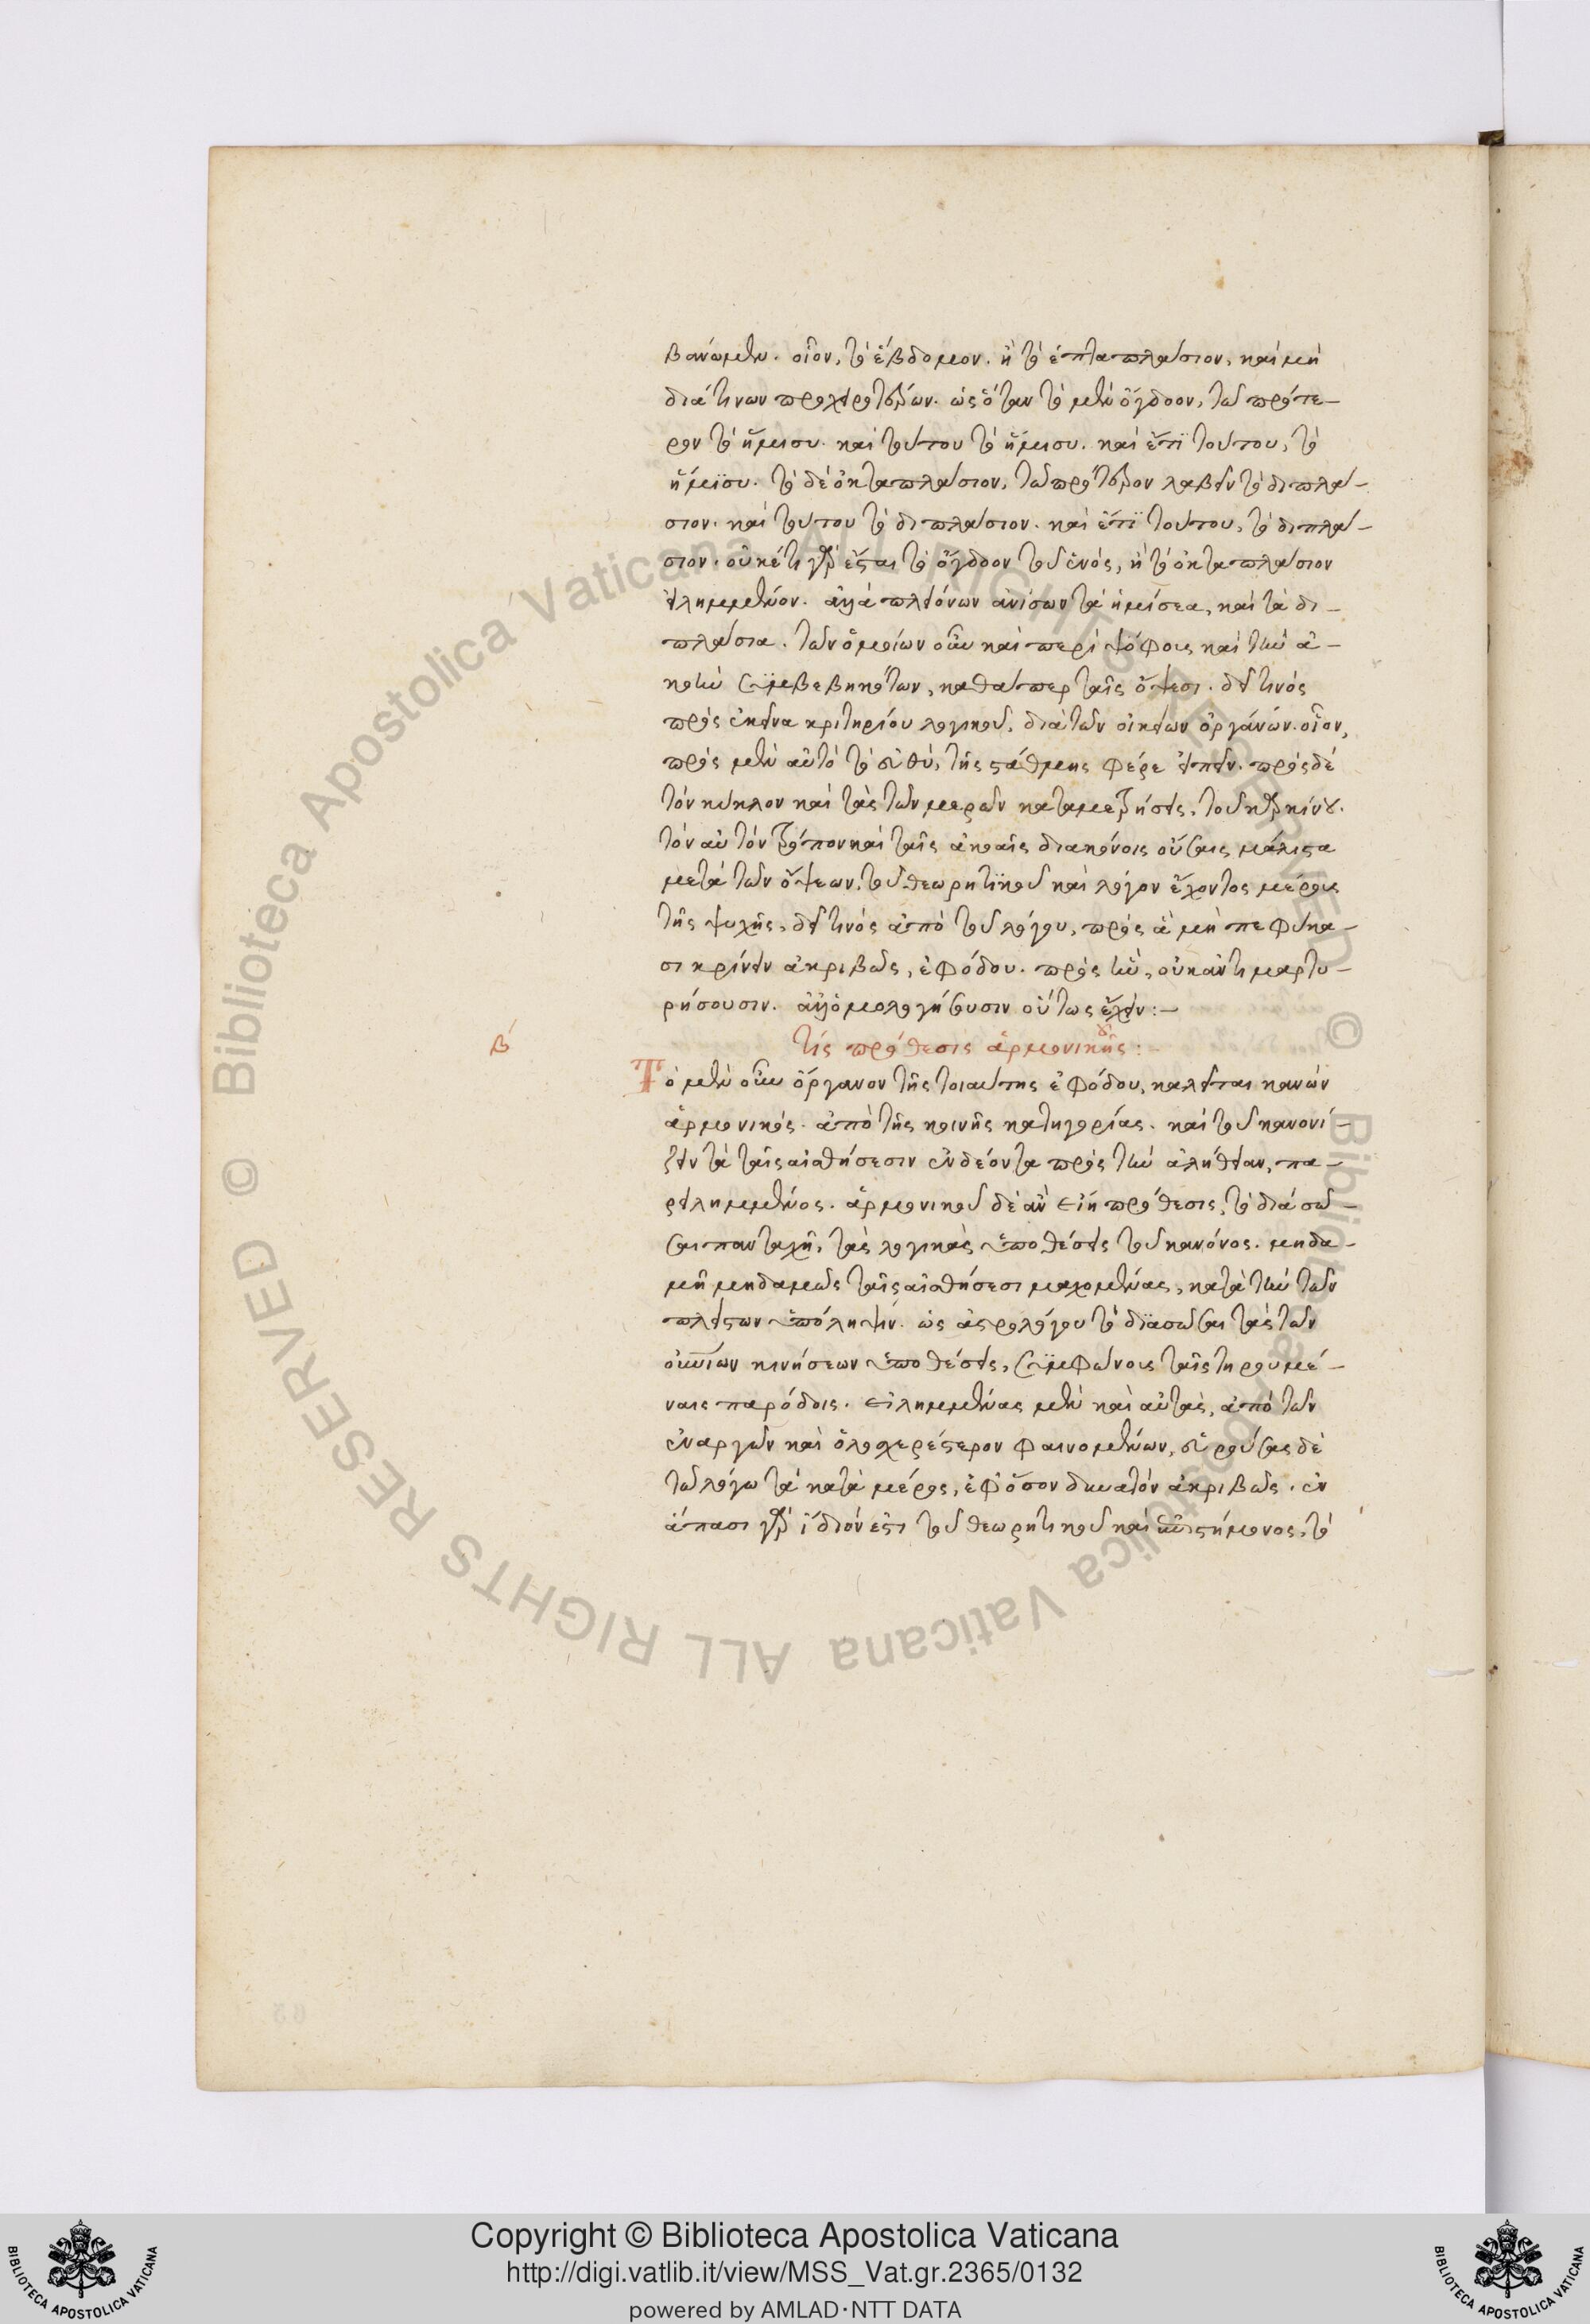 βανώμεν. οἷον, τὸ ἕβδομον. ἢ τὸ ἑπταπλάσιον, καὶ μὴ
διά τινων προχειροτέρων. ὡς ὅταν τὸ μὲν ὄγδοον, τῶ πρότε-
ρον τὸ ἥμισυ. καὶ τούτου τὸ ἥμισυ. καὶ ἔτι τούτου, τὸ
ἥμισυ. τὸ δὲ ὀκταπλάσιον, τῶ πρότερον λαβεῖν τὸ διπλά-
σιον. καὶ τούτου τὸ διπλάσιον. καὶ ἔτι τούτου, τὸ διπλά-
σιον. οὐκέτι γὰρ ἔσται τὸ ὄγδοον τοῦ ἑνός, ἢ τὸ ὀκταπλάσιον
εἰλημμένον. ἀλλὰ πλειόνων ἀνίσων τὰ ἡμίσεα, καὶ τὰ δι-
πλάσια. τῶν ὁμοίων οὖν καὶ περὶ ψόφους καὶ τὴν ἀ-
κοὴν συμβεβηκότων, καθάπερ ταῖς ὄψεσι. δεῖ τινὸς
πρὸς ἐκεῖνα κριτηρίου λογικοῦ, διὰ τῶν οἰκείων ὀργάνων. οἷον,
πρὸς μὲν αὐτὸ τὸ εὐθύ, τῆς στάθμης φέρε εἰπεῖν. πρὸς δὲ
τὸν κύκλον καὶ τὰς τῶν μερῶν καταμετρήσεις, τοῦ καρκίνου.
τὸν αὐτὸν τρόπον καὶ ταῖς ἀκοαῖς διακόνοις οὔσαις μάλιστα
μετὰ τῶν ὄψεων, τοῦ θεωρητικοῦ καὶ λόγον ἔχοντος μέρους
τῆς ψυχῆς, δεῖ τινὸς ἀπὸ τοῦ λόγου, πρὸς ἃ μὴ πεφύκα-
σι κρίνειν ἀκριβῶς, ἐφόδου. πρὸς ἣν, οὐκ ἀντιμαρτυ-
ρήσουσιν. ἀλλ' ὁμολογήσουσιν οὕτως ἔχειν:-
β΄
τίς πρόθεσις ἁρμονικῆς:
Τὸ μὲν οὖν ὄργανον τῆς τοιαύτης ἐφόδου, καλεῖται κανὼν
ἁρμονικός. ἀπὸ τῆς κοινῆς κατηγορίας. καὶ τοῦ κανονί-
ζειν τὰ ταῖς αἰσθήσεσιν ἐνδέοντα πρὸς τὴν ἀλήθειαν, πα-
ρειλημμένος. ἁρμονικοῦ δὲ ἂν εἴη πρόθεσις, τὸ διασῶ-
σαι πανταχῆ, τὰς λογικὰς ὑποθέσεις τοῦ κανόνος. μηδα-
μῆ μηδαμῶς ταῖς αἰσθήσεσι μαχομένας, κατὰ τὴν τῶν
πλείστων ὑπόληψιν. ὡς ἀστρολόγου τὸ διασῶσαι τὰς τῶν
οὐρανίων κινήσεων ὑποθέσεις, συμφώνους ταῖς τηρουμέ-
ναις παρόδοις. εἰλημμένας μὲν καὶ αὐτὰς, ἀπὸ τῶν
ἐναργῶν καὶ ὁλοσχερέστερον φαινομένων, εὑρούσας δὲ
τῶ λόγω τὰ κατὰ μέρος, ἐφ' ὅσον δυνατὸν ἀκριβῶς. ἐν
ἅπασι γὰρ ἴδιόν ἐστι τοῦ θεωρητικοῦ καὶ ἐπιστήμονος, τὸ
Copyright © Biblioteca Apostolica Vaticana
http://digi.vatlib.it/view/MSS_Vat.gr.2365/0132
powered by AMLAD·NTT DATA